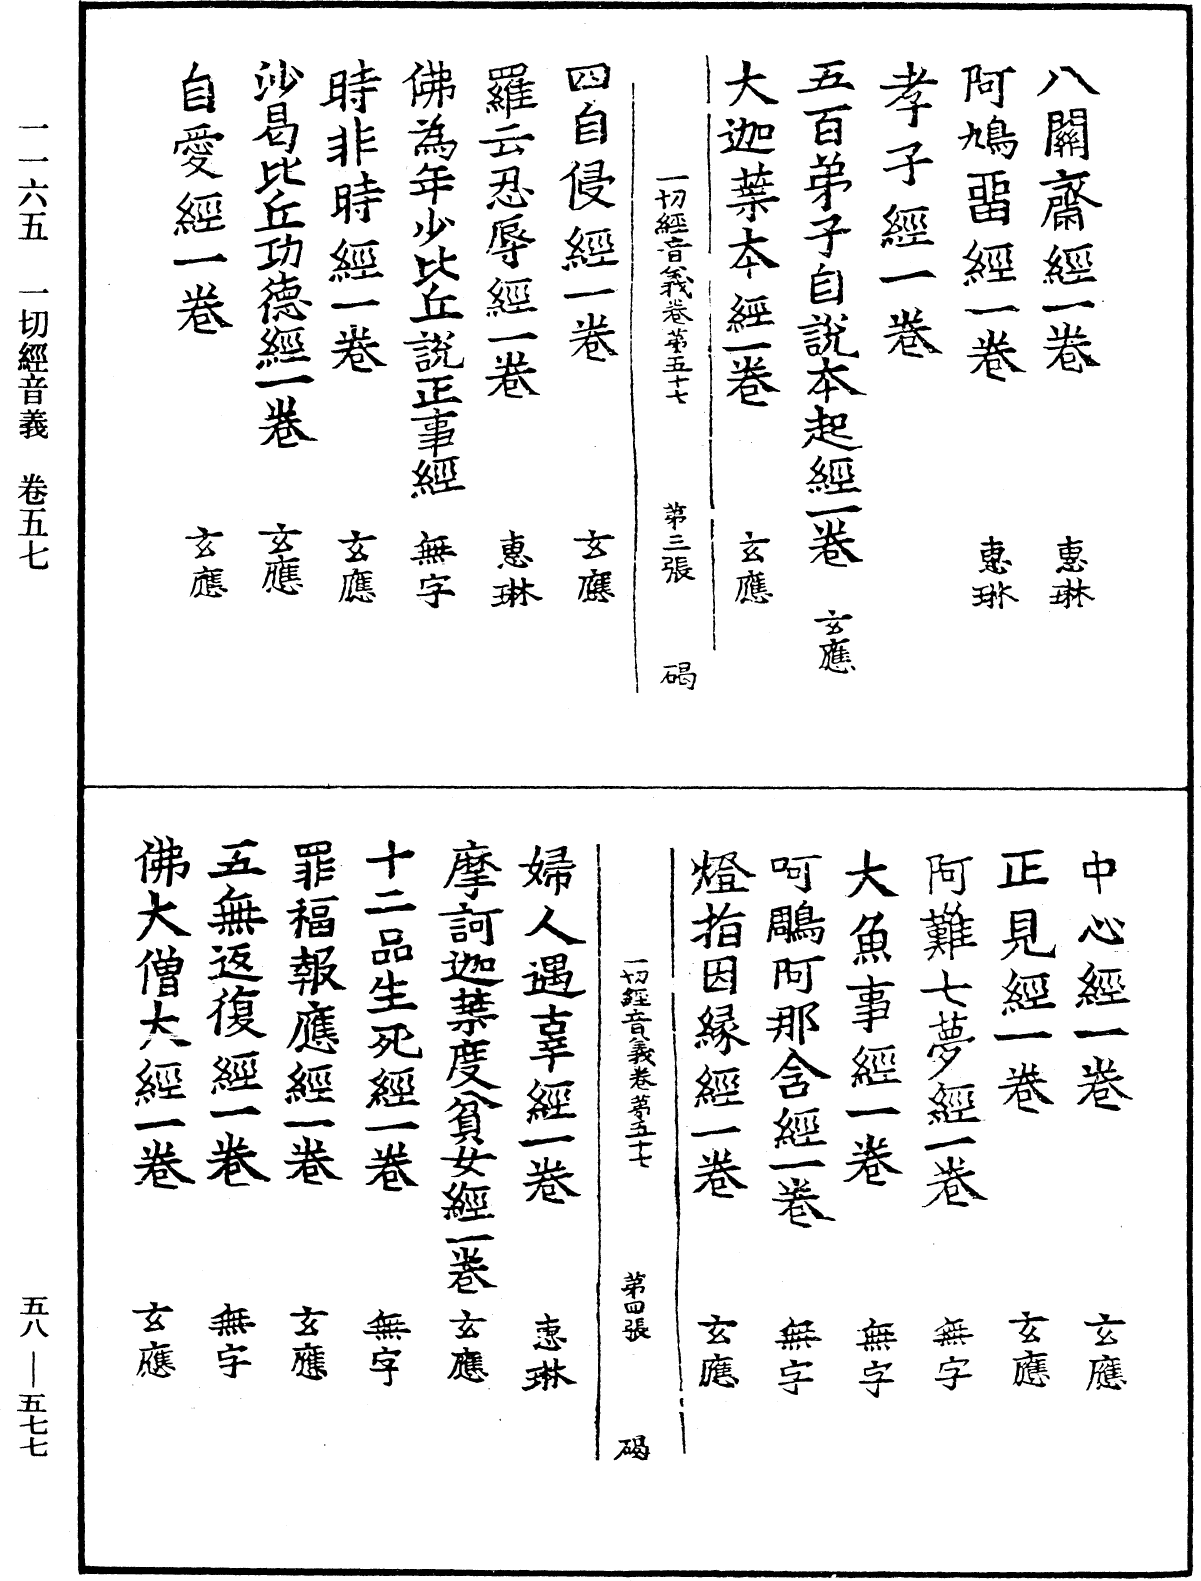 八關齋經一卷　惠琳
阿鳩留經一卷　惠琳
孝子經一卷
五百弟子自說本起經一卷　玄應
大迦葉本經一卷　玄應
一切經音義卷第五十七　第三張　碣
四自侵經一卷　玄應
羅云忍辱經一卷　惠琳
佛為年少比丘說正事經　無字
時非時經一卷　玄應
沙曷比丘功德經一卷　玄應
自愛經一卷　玄應
中心經一卷　玄應
正見經一卷　玄應
阿難七夢經一卷　無字
大魚事經一卷　無字
呵鵰阿那含經一卷　無字
燈指因緣經一卷　玄應
一切經音義卷第五十七　第四張　碣
婦人遇辜經一卷　惠琳
摩訶迦葉度貧女經一卷　玄應
十二品生死經一卷　無字
罪福報應經一卷　玄應
五無返復經一卷　無字
佛大僧大經一卷　玄應
一一六五　一切經音義　卷五七
五八—五七七